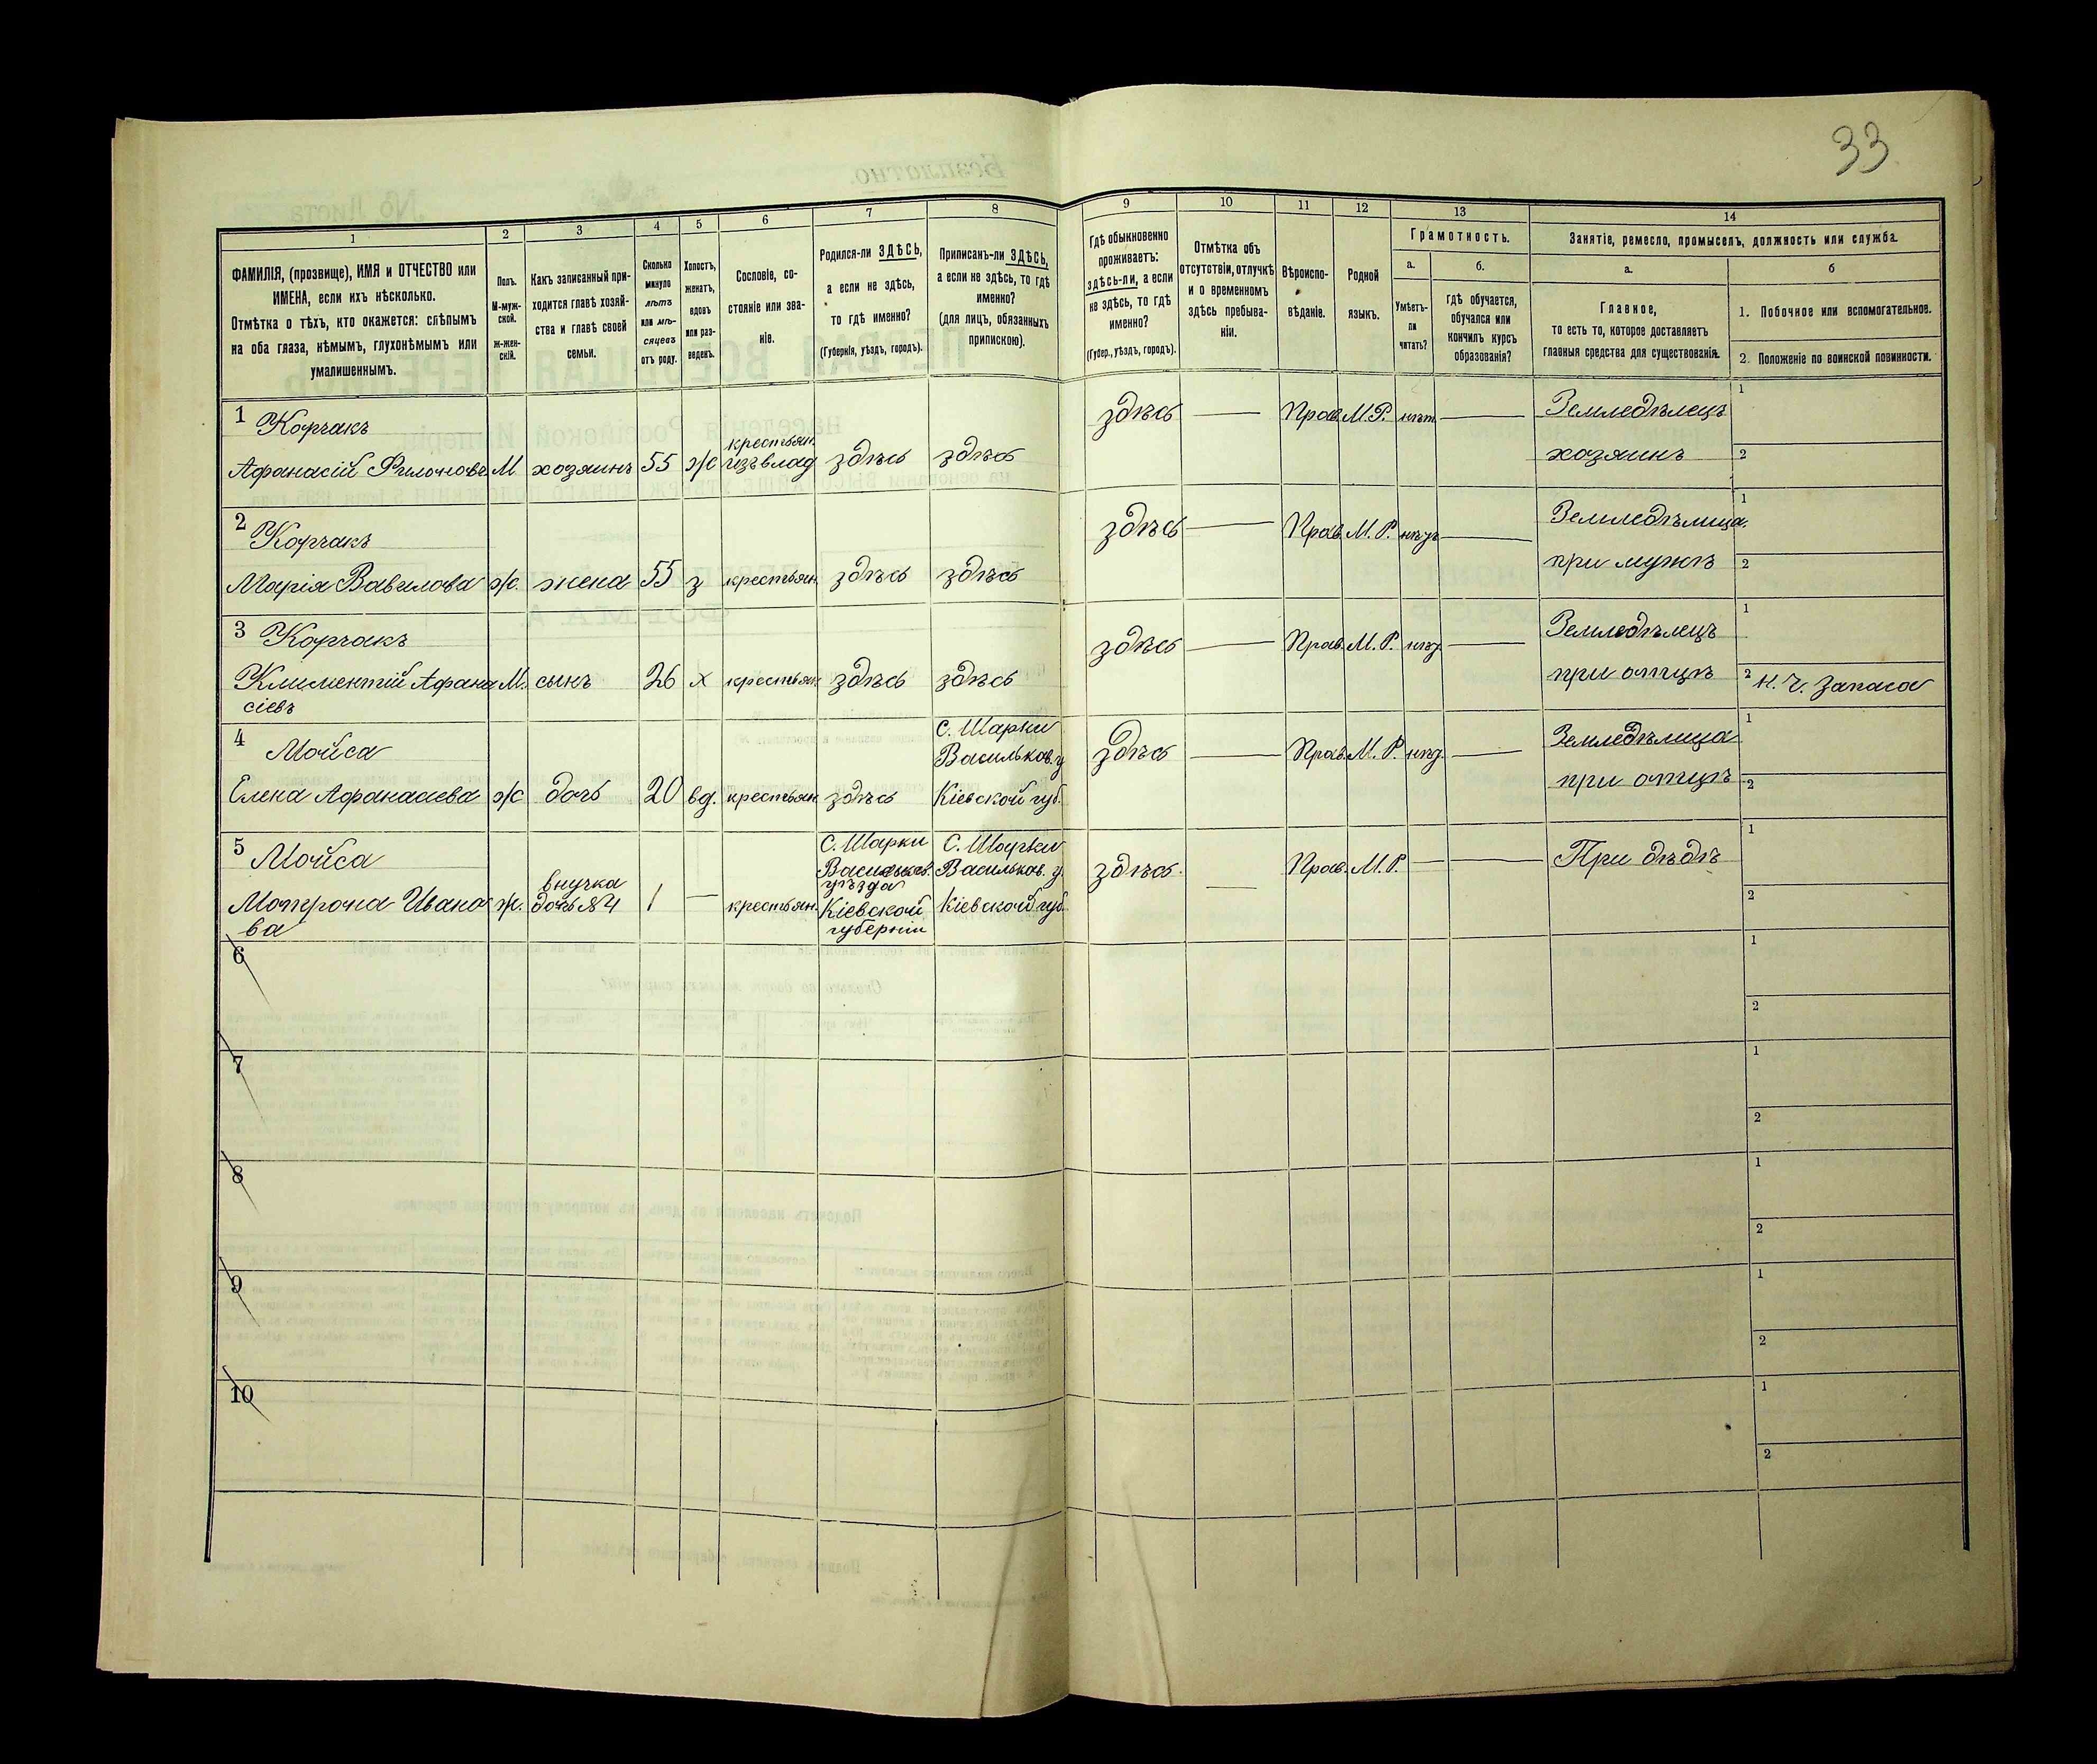 33
1
2
3
4
5
6
7
8
9
10
11
12
13
14
ФАМИЛІЯ, (прозвище), ИМЯ и ОТЧЕСТВО или
ИМЕНА, если ихъ нѣсколько.
Отмѣтка о тѣхъ, кто окажется: слѣпымъ
на оба глаза, нѣмымъ, глухонѣмымъ или
умалишеннымъ.
Полъ.
М-муж-
ской.
ж-жен-
скій.
Какъ записанный при-
ходится главѣ хозяй-
ства и главѣ своей
семьи.
Сколько
минуло
лѣтъ
или мѣ-
сяцевъ
отъ роду.
Холостъ,
женатъ,
вдовъ
или раз-
веденъ.
Сословіе, со-
стояніе или зва-
ніе.
Родился-ли ЗДѢСЬ,
а если не здѣсь,
то гдѣ именно?
(Губернія, уѣздъ, городъ).
Приписанъ-ли ЗДѢСЬ,
а если не здѣсь, то гдѣ
именно?
(для лицъ, обязанныхъ
припискою).
Гдѣ обыкновенно
проживаетъ:
здѣсь-ли, а если
не здѣсь, то гдѣ
именно?
(Губер., уѣздъ, городъ).
Отмѣтка объ
отсутствіи, отлучкѣ
и о временномъ
здѣсь пребыва-
ніи.
Вѣроиспо-
вѣданіе.
Родной
языкъ.
Грамотность.
а.
Умѣетъ-
ли
читать?
б.
Гдѣ обучается,
обучался или
кончилъ курсъ
образованія?
Занятіе, ремесло, промыселъ, должность или служба.
а.
Главное,
то есть то, которое доставляетъ
главныя средства для существованія.
б
1. Побочное или вспомогательное.
2. Положеніе по воинской повинности.
1 Корчакъ
Афанасій Филоновъ М хозяинъ 55 ж крестьян. изъ влад здѣсь здѣсь здѣсь — Прав. М.Р. нѣт — Земледѣлецъ 1
хозяинъ 2
2 Корчакъ
Марія Вавилова ж. жена 55 з крестьян. здѣсь здѣсь здѣсь — Прав. М.Р. нѣт — Земледѣлица 1
при мужѣ 2
3 Корчакъ
Климентій Афана М. сынъ 26 х крестьян здѣсь здѣсь здѣсь — Прав. М.Р. нѣт — Земледѣлецъ 1
сіевъ
при отцѣ 2 н. ч. запаса
4 Мойса
Елена Афанасиева ж дочь 20 вд. крестьян здѣсь
С. Шарки
Васильков. у
Кіевской губ.
здѣсь — Прав. М.Р. нѣт. — Земледѣлица 1
при отцѣ 2
5 Мойса
Мотрона Ивано ж. внучка 1 — крестьян.
ва
дочь №4
С. Шарки
Васильков.
уѣзда
Кіевской
губерніи
С. Шарки
Васильков. у
Кіевской губ.
здѣсь. — Прав. М.Р. — — При дѣдѣ 1
2
6
1
2
7
1
2
8
1
2
9
1
2
10
1
2